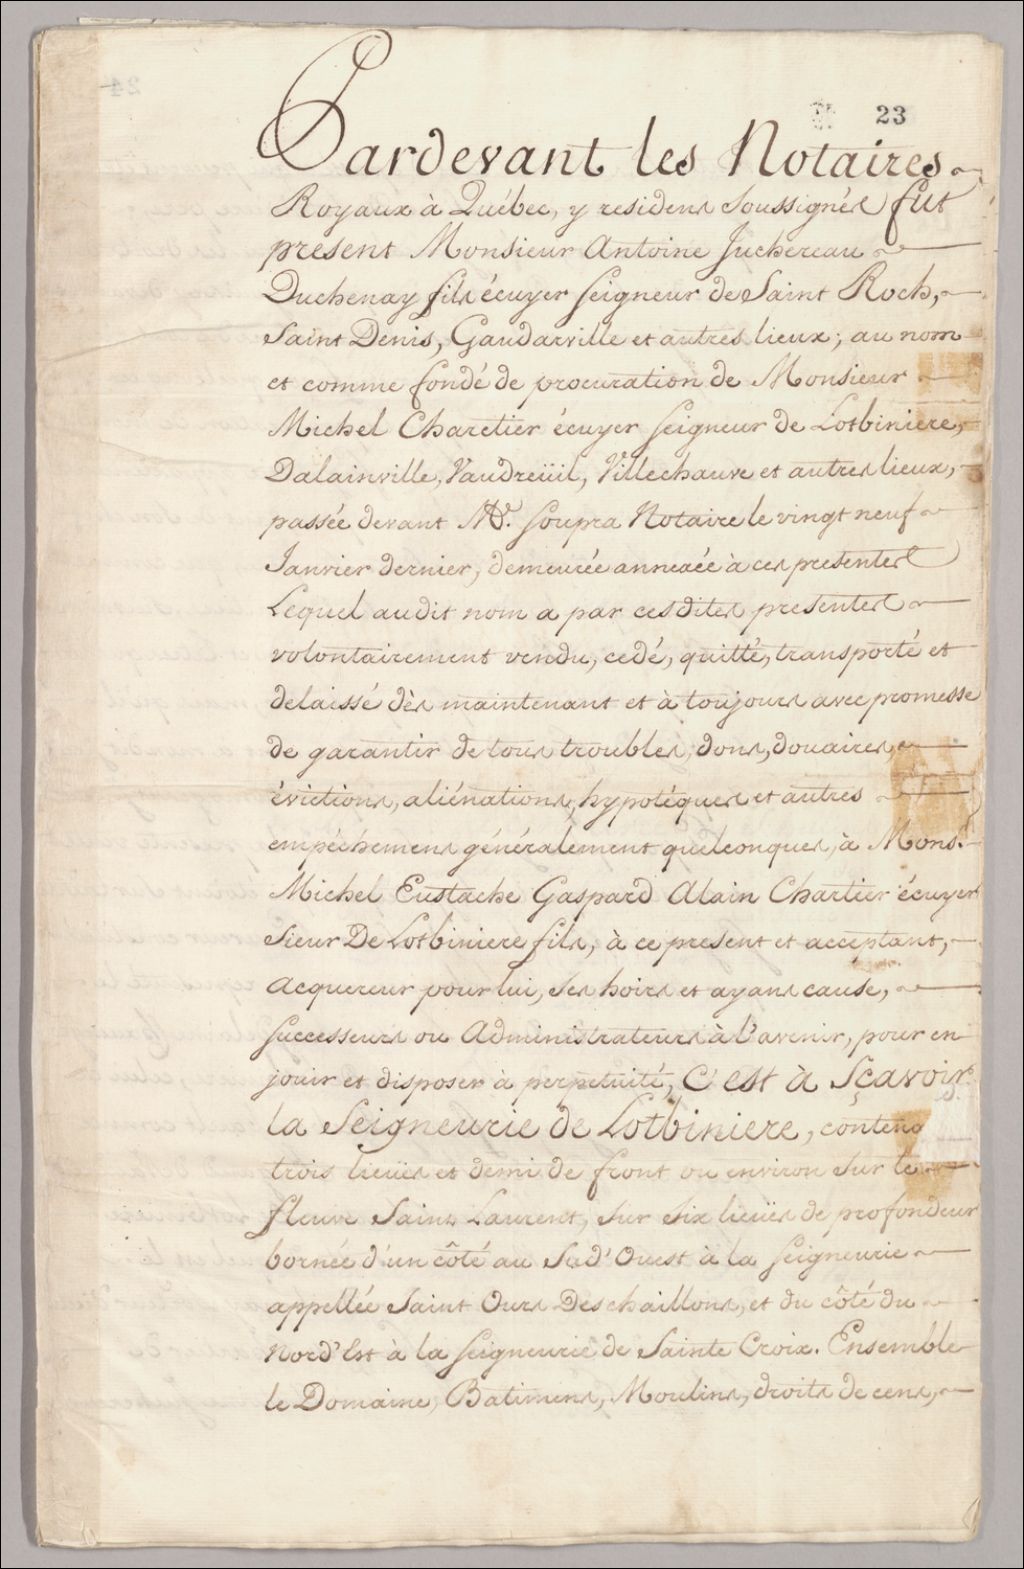 23
Pardevant les Notaires
Royaux à Québec, y residens Soussignés fut
present Monsieur Antoine Juchereau
Duchenay fils écuyer Seigneur de Saint Roch,
Saint Denis, Gaudarville et autres lieux; au nom
et comme fondé de procuration de Monsieur
Michel Charetier écuyer Seigneur de Lotbiniere,
Dalainville, Vaudreüil, Villechauve et autres lieux,
passée devant Me. Soupra Notaire le vingt neuf
Janvier dernier, demeurée annexée à ces presentes
Lequel audit nom a par cesdites presentes
volontairement vendu, cedé, quitté, transporté et
delaissé dès maintenant et à toujours avec promesse
de garantir de tous troubles, dons, douaires,
évictions, aliénations, hypotéques et autres
empéchemens généralement quelconques, à Monsr.
Michel Eustache Gaspard Alain Chartier écuyer
Sieur De Lotbiniere fils, à ce present et acceptant,
Acquereur pour lui, Ses hoirs et ayans cause,
Successeurs ou Administrateurs à l'avenir, pour en
jouir et disposer à perpetuité, C'est à Sçavoir
la Seigneurie de Lotbiniere, contena
trois lieües et demi de front ou environ Sur le
fleuve Saint Laurent, Sur Six lieües de profondeur
bornée d'un côté au Sud'Ouest à la Seigneurie
appellée Saint Ours Deschaillons, et du côté du
Nord'Est à la Seigneurie de Sainte Croix. Ensemble
le Domaine, Batimens, Moulins, droits de cens,